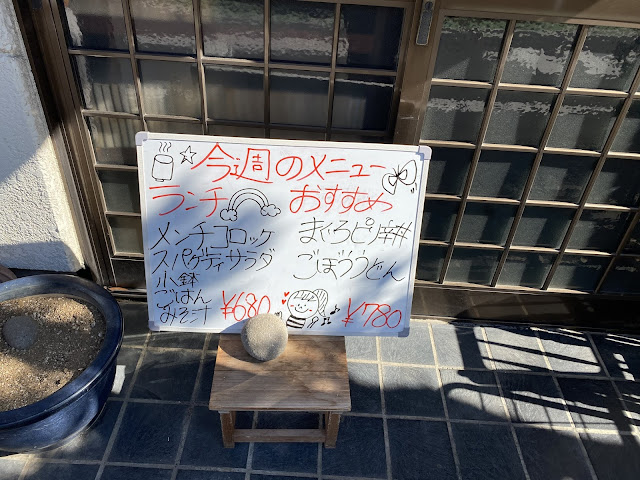 今週のメニュー
ランチ
メンチ、コロッケ
スパゲティサラダ
小鉢
ごはん
みそ汁
¥680
おすすめ
まぐろピリ辛丼
ごぼううどん
¥780